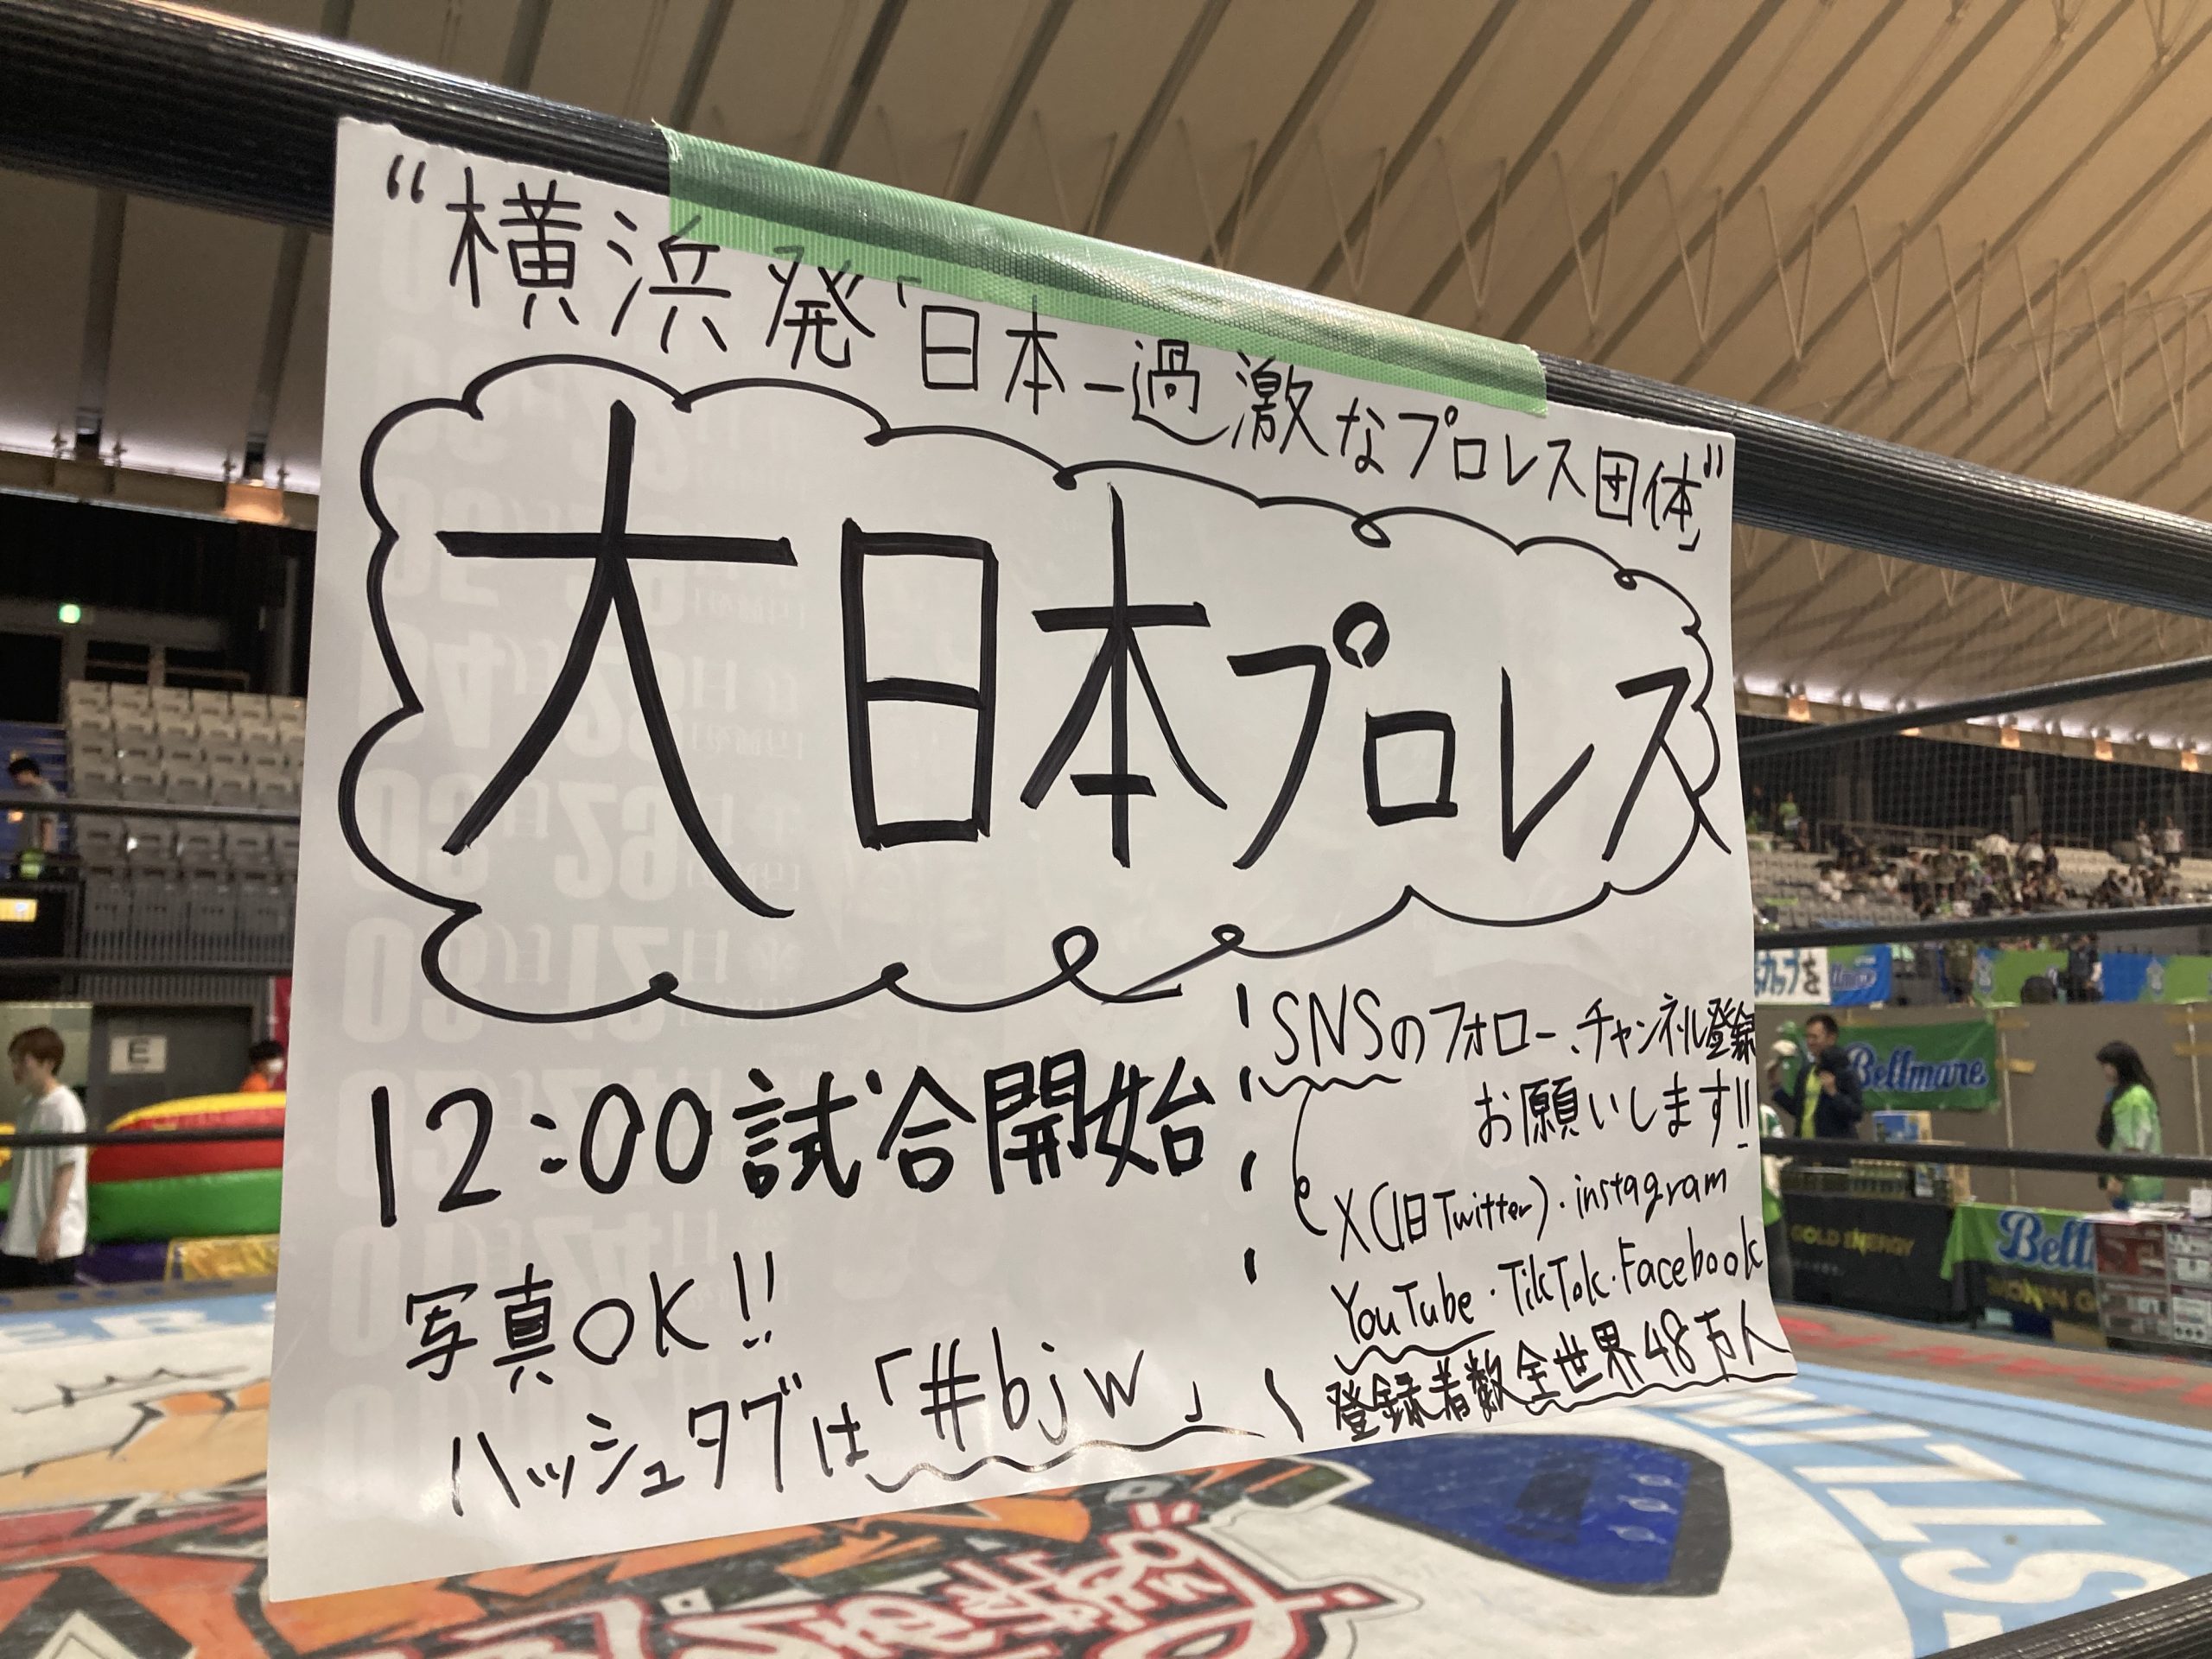 “横浜発「日本一過激なプロレス団体」”
大日本プロレス
12:00試合開始
写真OK!!
ハッシュタグは「#bjw」
SNSのフォロー、チャンネル登録
お願いします!!
X(旧Twitter)・instagram
YouTube・TikTok・Facebook
登録者数全世界48万人
E
カップを
Bellmare
GOLD ENERGY
Bell